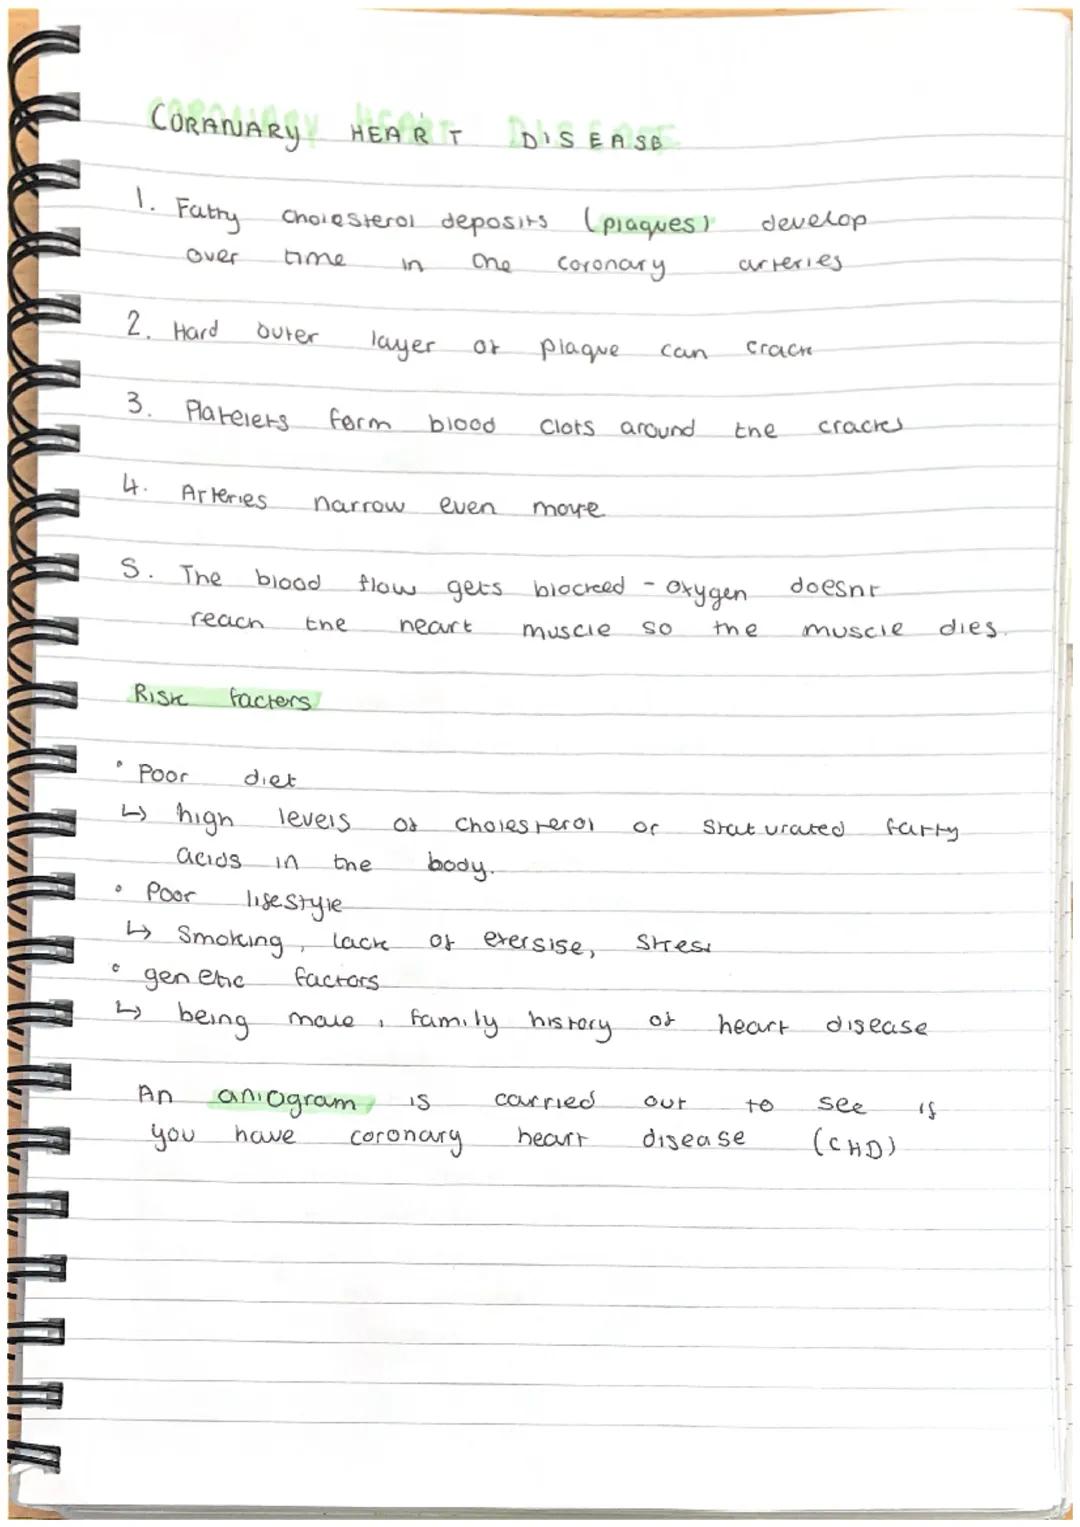 CORANARY HEART DISEASE
1. Fatty cholesterol deposits (plaques) develop
over time in the coronary arteries
2. Hard outer layer of plaque can crack
3. Platelets form blood clots around the cracks
4. Arteries narrow even more
5. The blood flow gets blocked - oxygen doesnt
reach the heart muscle so the muscle dies.
Risk factors
• Poor diet
↳ high levels of cholesterol or staturated fatty
acids in the body.
• Poor lifestyle
↳ Smoking, lack of exersise, stress
• genetic factors
↳ being male, family history of heart disease
An aniogram is carried out to see if
you have coronary heart disease (CHD)